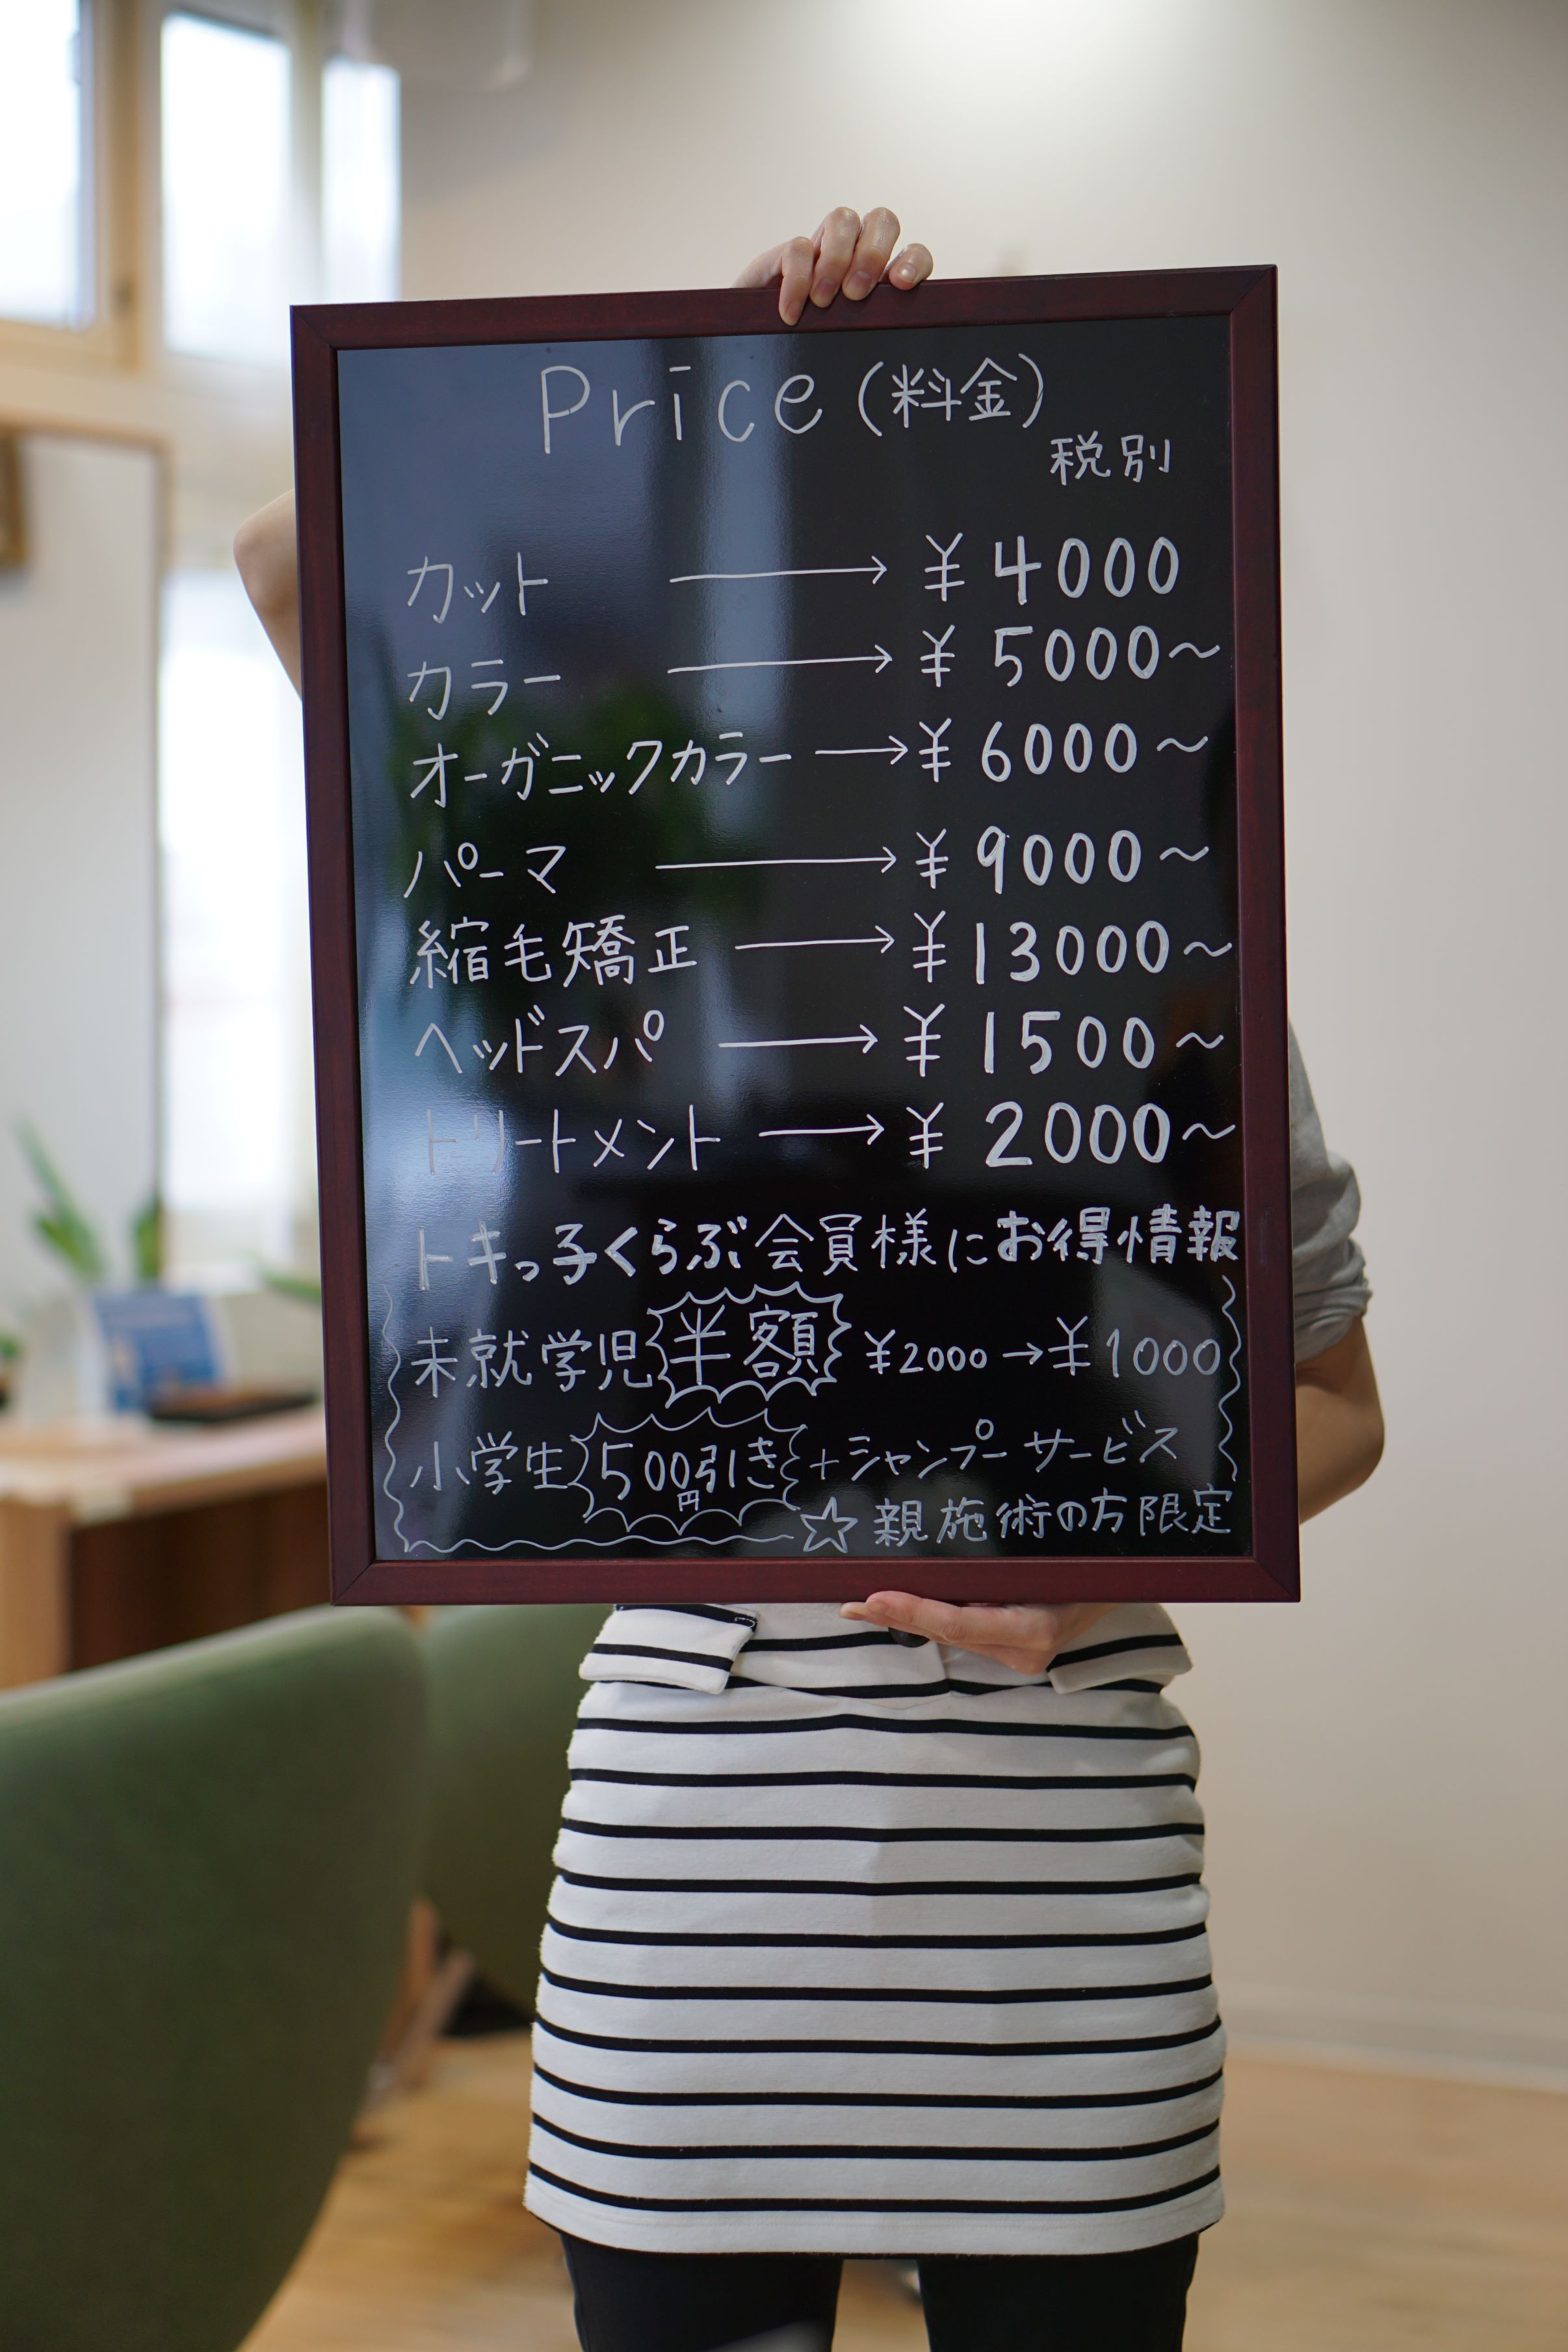 Price (料金)
税別
カット → ¥4000
カラー → ¥5000〜
オーガニックカラー → ¥6000〜
パーマ → ¥9000〜
縮毛矯正 → ¥13000〜
ヘッドスパ → ¥1500〜
トリートメント → ¥2000〜
トキっ子くらぶ会員様にお得情報
未就学児 半額 ¥2000→¥1000
小学生 500円引き +シャンプーサービス
☆親施術の方限定